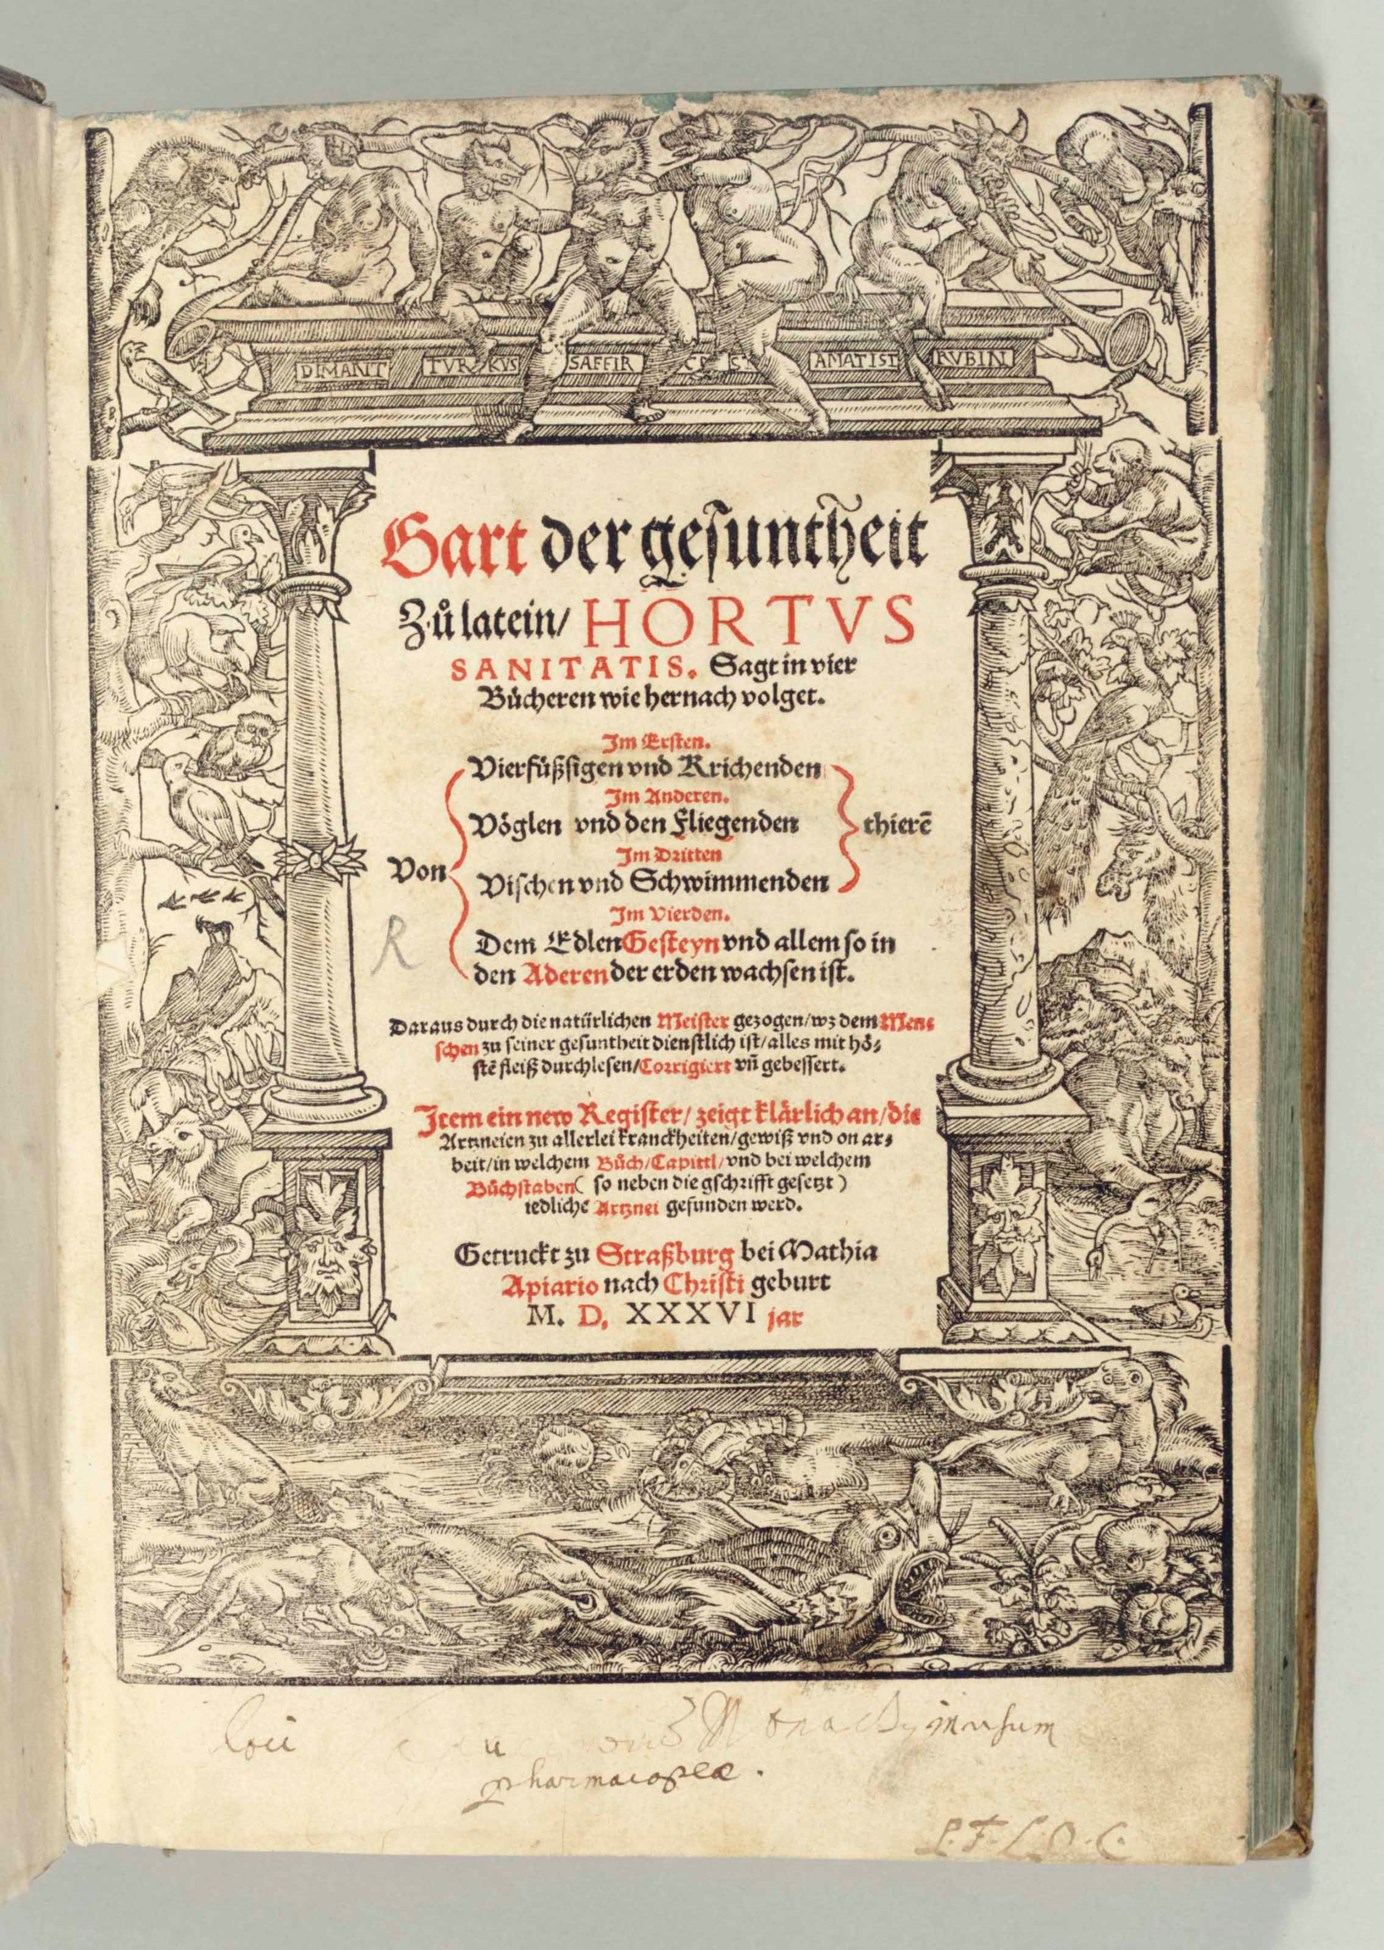 DIMANT TVRKVS SAFFIR CRIST AMATIST RVBIN
Gart der gesuntheit
Zů latein/ HORTVS
SANITATIS. Sagt in vier
Bücheren wie hernach volget.
Im Ersten.
Vierfüßsigen vnd Krichenden
Im Anderen.
Vöglen vnd den Fliegenden
thierē
Im Dritten
Von
Vischen vnd Schwimmenden
Im Vierden.
R
Dem Edlen Gesteyn vnd allem so in
den Aderen der erden wachsen ist.
Daraus durch die natürlichen Meister gezogen/wz dem Men-
schen zu seiner gesuntheit dienstlich ist/alles mit hö-
stē fleiß durchlesen/Corrigiert vñ gebessert.
Item ein new Register/ zeigt klärlich an/die
Artzneien zu allerlei kranckheiten/gewiß vnd on ar-
beit/in welchem Bůch/Capittl/vnd bei welchem
Bůchstaben( so neben die gschrifft gesetzt )
iedliche Artznei gefunden werd.
Getruckt zu Straßburg bei Mathia
Apiario nach Christi geburt
M. D. XXXVI jar
loci in usum
pharmacopeæ.
P. F. L. O. C.